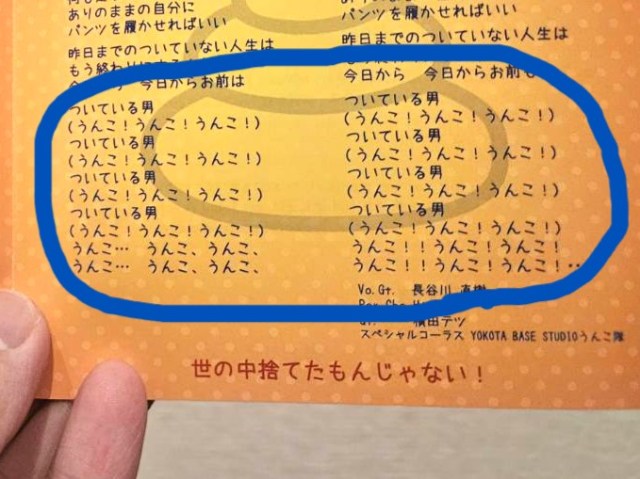 ありのままの自分に
パンツを履かせればいい
昨日までのついていない人生は
もう終わ
今日からお前は
ついている男
(うんこ!うんこ!うんこ!)
ついている男
(うんこ!うんこ!うんこ!)
ついている男
(うんこ!うんこ!うんこ!)
ついている男
(うんこ!うんこ!うんこ!)
うんこ… うんこ、うんこ、
うんこ… うんこ、うんこ、
パンツを履かせればいい
昨日までのついていない人生は
今日から 今日からお前も
ついている男
(うんこ!うんこ!うんこ!)
ついている男
(うんこ!うんこ!うんこ!)
ついている男
(うんこ!うんこ!うんこ!)
ついている男
(うんこ!うんこ!うんこ!)
うんこ!!うんこ!うんこ!
うんこ!!うんこ!うんこ!‥
Vo.Gt. 長谷川 直樹
横田テツ
スペシャルコーラス YOKOTA BASE STUDIOうんこ隊
世の中捨てたもんじゃない!